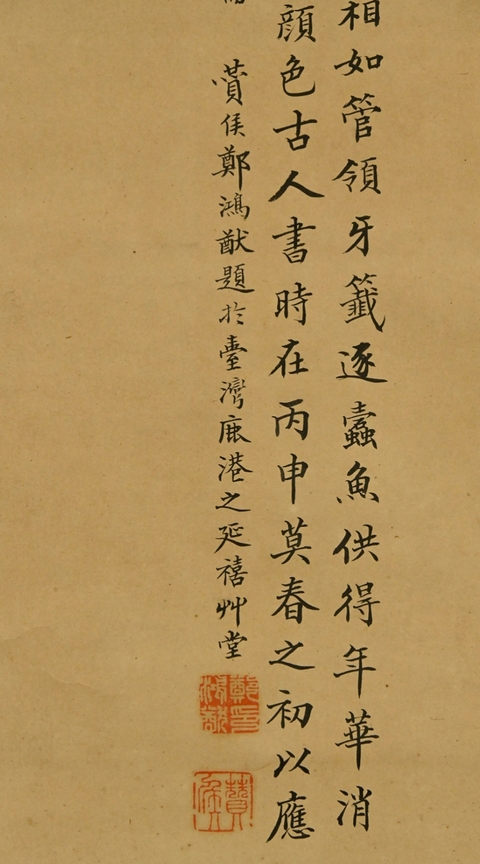 相如管領牙籤逐蠹魚供得年華消
顏色古人書時在丙申莫春之初以應
贊侯鄭鴻猷題於臺灣鹿港之延禧艸堂